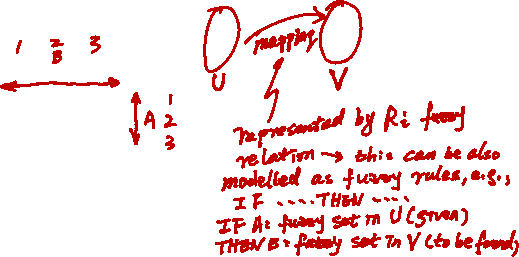 1 2 3
B
mapping
U V
A 1
2
3
represented by R: fuzzy
relation → this can be also
modelled as fuzzy rules, e.g.,
IF ..... THEN .....
IF A: fuzzy set in U (given)
THEN B: fuzzy set in V (to be found)